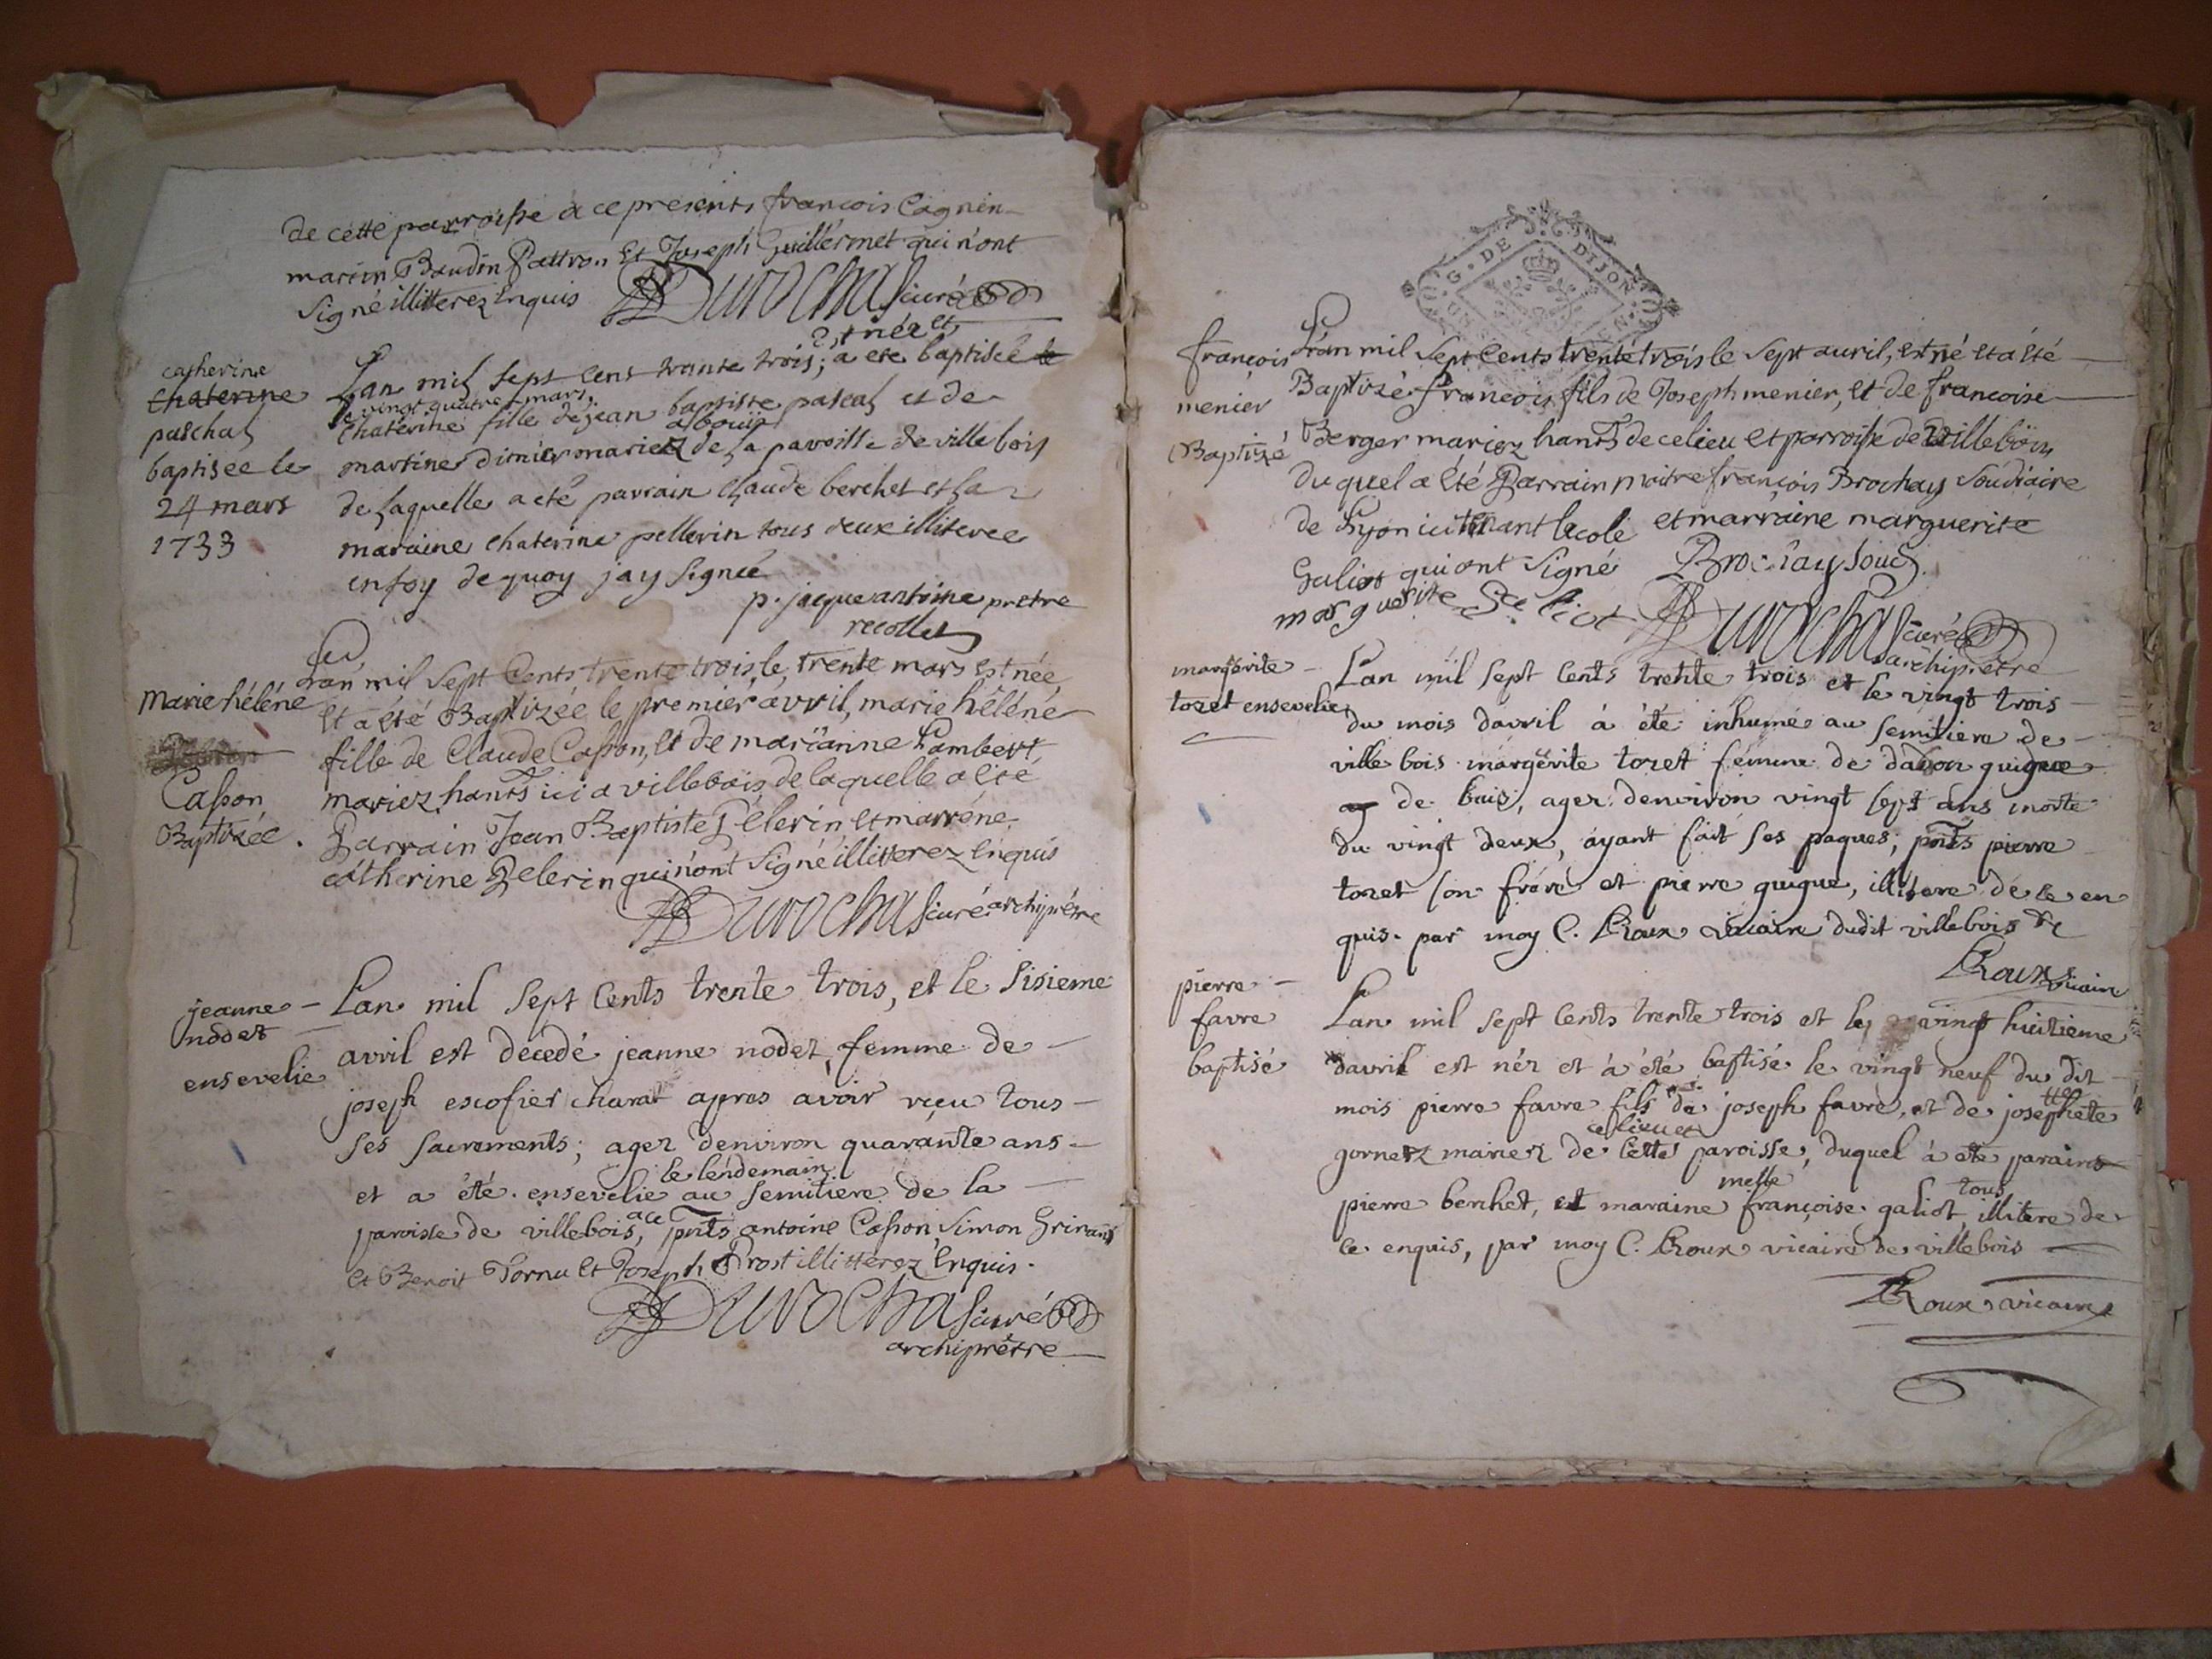 de cette parroisse a ce presents françois Cagnin
marin Baudin Pattron Et Joseph Guillermet qui n'ont
Signé illitterez Enquis Durochas curé
est néz et
catherine
chaterine
paschal
baptisée le
24 mars
1733
Lan mil sept cens trante trois; a ete baptisée le
le vingt quatre mars
chaterine fille de jean baptiste pascal et de
martine dimier mariez de la paroisse de ville bois
de laquelle a eté parrain claude berchet et la
maraine chaterine pellerin tous deux illiteree
en foy de quoy jay Signeé
p. jacque antoine pretre
recollet
Marie hélène
Casson
Baptizée.
L'an mil Sept Cents trente trois, le trente mars est née
Et a été Baptizée le premiér avril, marie hélène
fille de Claude Casson, Et de marianne Lambert,
mariez hants ici a villebois, de laquelle a été
Parrain Jean Baptiste Pélerin, et marréne
catherine Pelerin qui n'ont Signé illitterez Enquis
Durochas curé archiprétre
jeanne
nodet
ensevelie
Lan mil Sept Cents trente trois, et le Sisieme
avril est décédé jeanne nodet, femme de
joseph escofier charat apres avoir reçu tous
ses sacrements; agez denviron quarante ans
le lendemain
et a été ensevelie au semitiere de la
paroisse de villebois, a ce pnts antoine Casson, Simon Grinand
et Benoit Tornu Et Joseph Prost illitterez Enquis.
Durochas curé
archiprétre
G. DE DIJON
françois
menier
Baptizé
L'an mil Sept Cents trente trois le Sept avril, est né et a été
Baptizé françois fils de Joseph menier, et de francoise
Berger mariez hants de ce lieu et parroisse de Villebois
du quel a été Parrain maitre françois Brochay Soudiaire
de Lyon ici tenant lecole et marraine marguerite
Galiot qui ont Signé Brochay Soud.
marguerite Galiot Durochas curé
archiprêtre
margérite
toret ensevelie
Lan mil sept Cents trente trois et le vingt trois
du mois davril à été inhumé au semitiere de
ville bois margérite toret femme de guigue
de buis, agez denviron vingt sept ans morte
du vingt deux, ayant fait ses paques; pnts pierre
toret son frére et pierre guigue, illitere de ce en
quis par moy C. Roux vicaire dudit villebois
Roux vicaire
pierre
favre
baptisé
Lan mil sept Cents trente trois et le vingt huitieme
davril est néz et à été baptisé le vingt neuf du dit
mois pierre favre fils de joseph favre, et de josephete
ce lieu et
gornez mariez de cette paroisse, duquel à eté parains
melle tous
pierre berchet, et maraine françoise galiot, illitere de
ce enquis, par moy C. Roux vicaire de villebois
Roux vicaire